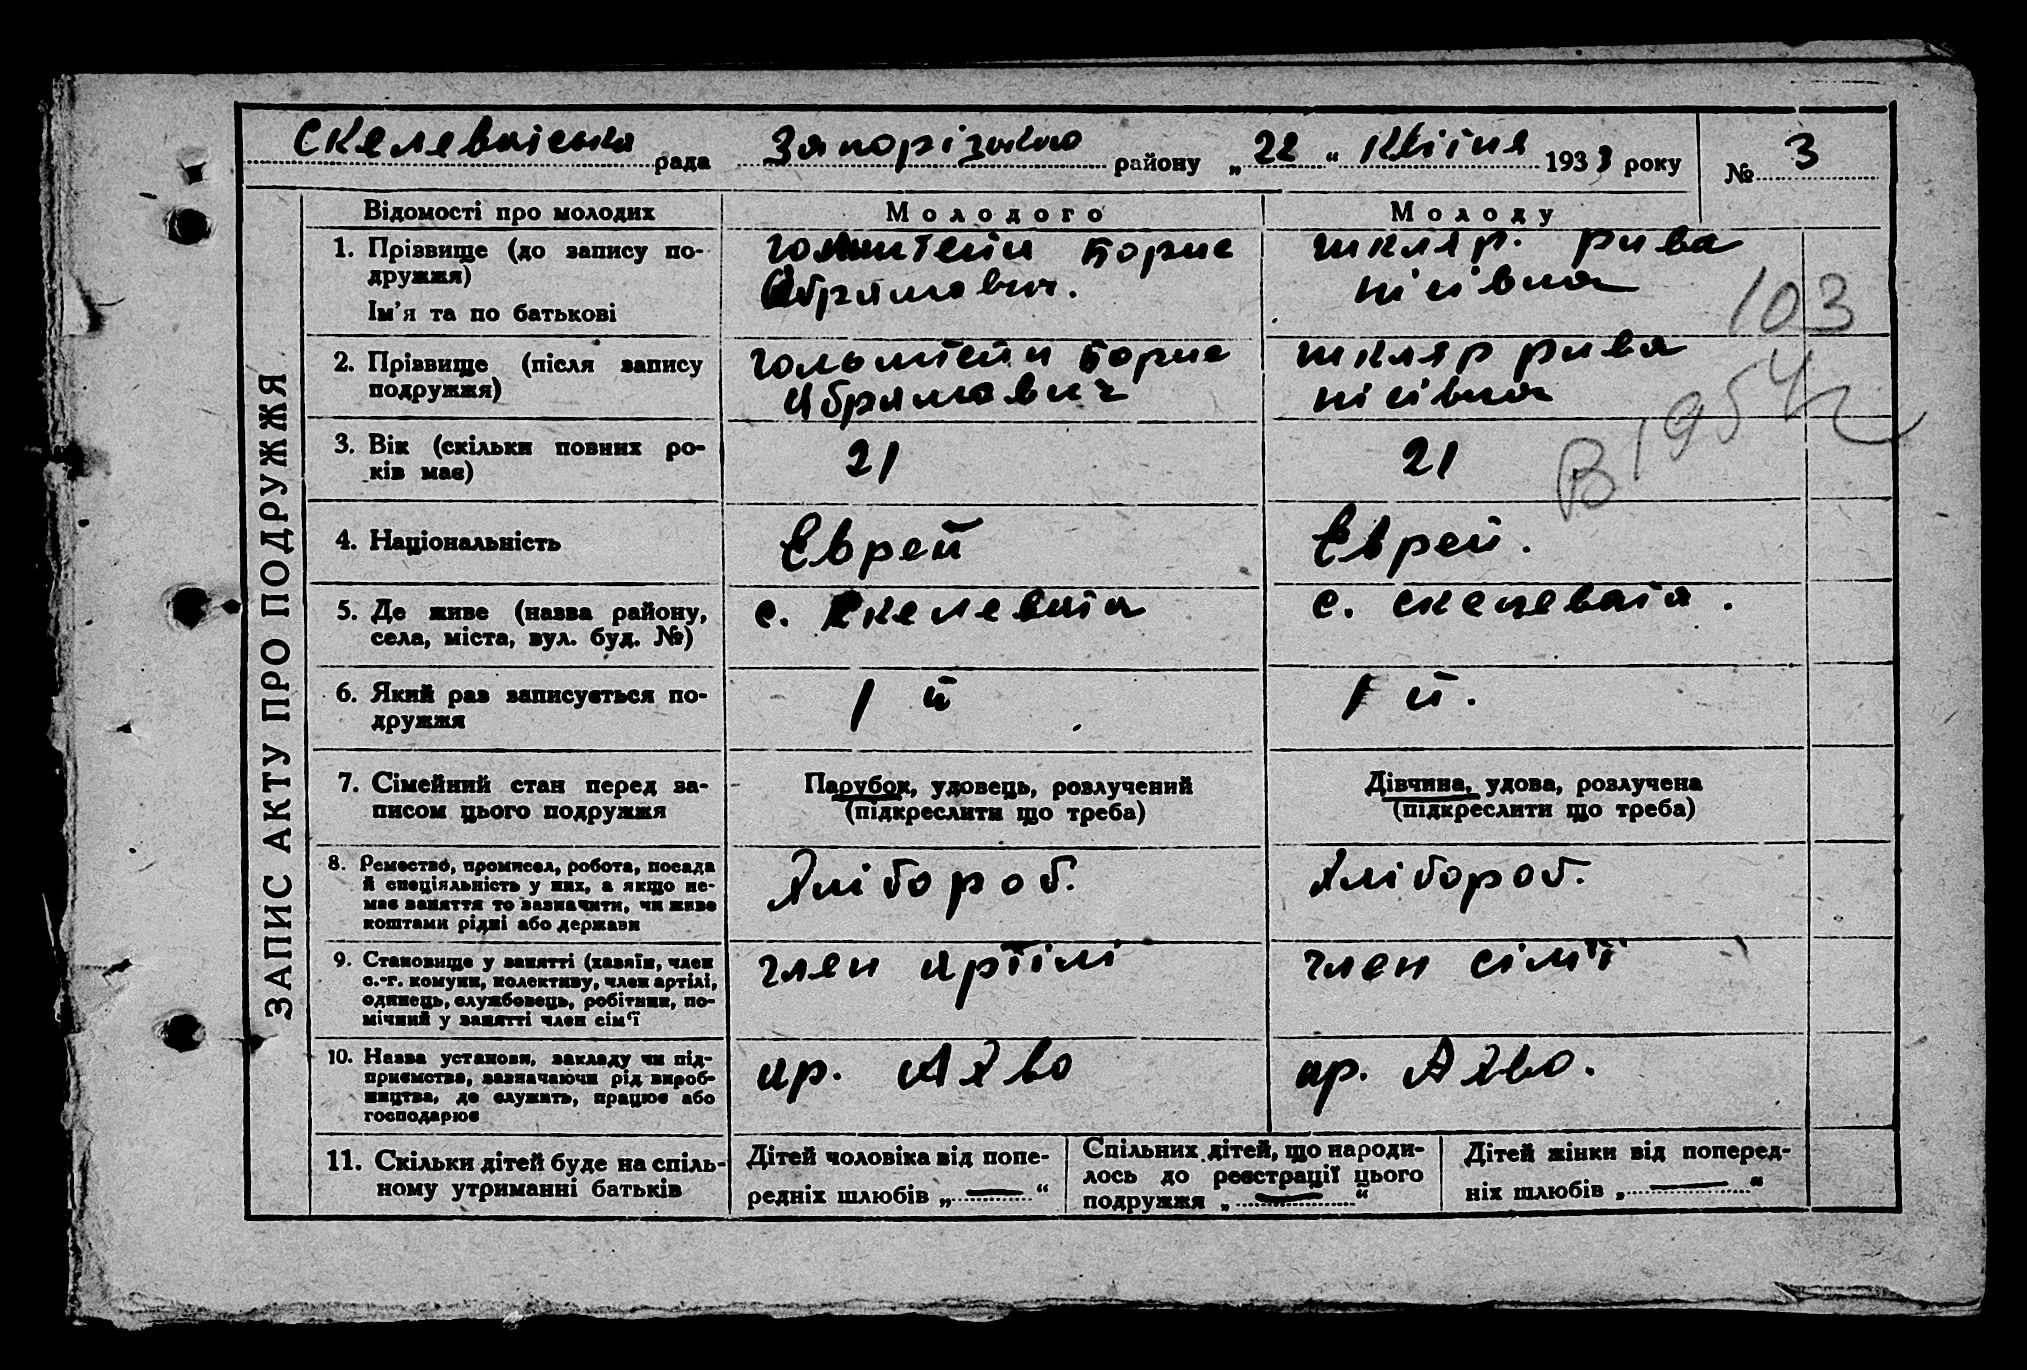 Скелеватська рада Запорізького району „22“ Квітня 1933 року № 3
ЗАПИС АКТУ ПРО ПОДРУЖЖЯ
Відомості про молодих Молодого Молоду
1. Прізвище (до запису по-
дружжя)
Ім'я та по батькові
Гольштейн Борис
Абрамович.
Шкляр. Рива
103
2. Прізвище (після запису
подружжя)
Гольштейн Борис
Абрамович
Шкляр Рива
В 1954
3. Вік (скільки повних ро-
ків має)
21
21
4. Національність
Єврей
Єврей.
5. Де живе (назва району,
села, міста, вул. буд. №)
с. Скелеватка
с. Скелеватка.
6. Який раз записується по-
дружжя
1 й
1 й.
7. Сімейний стан перед за-
писом цього подружжя
Парубок, удовець, розлучений
(підкреслити що треба)
Дівчина, удова, розлучена
(підкреслити що треба)
8. Ремество, промисел, робота, посада
й спеціяльність у них, а якщо не-
має заняття то зазначити, чи живе
коштами рідні або держави
Хлібороб.
Хлібороб.
9. Становище у занятті (хазяїн, член
с.-г. комуни, колективу, член артілі,
одинець, службовець, робітник, по-
мічний у занятті член сім'ї
член артілі
член сім'ї
10. Назва установи, закладу чи під-
приємства, зазначаючи рід вироб-
ництва, де служить, працює або
господарює
ар. Ахво
ар. Ахво.
11. Скільки дітей буде на спіль-
ному утриманні батьків
Дітей чоловіка від попе-
редніх шлюбів „—“
Спільних дітей, що народи-
лось до реєстрації цього
подружжя „—“
Дітей жінки від поперед-
ніх шлюбів „—“